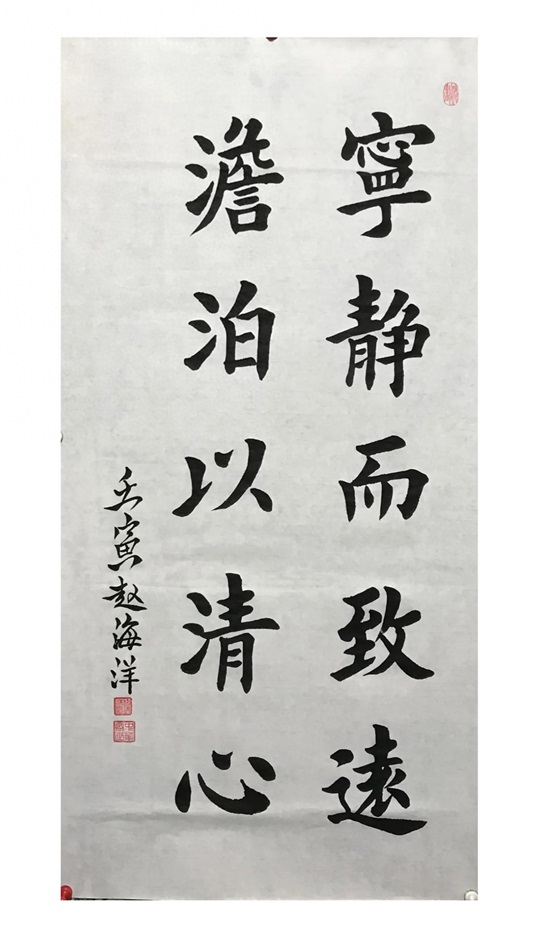 寧静而致遠
澹泊以清心
壬寅赵海洋